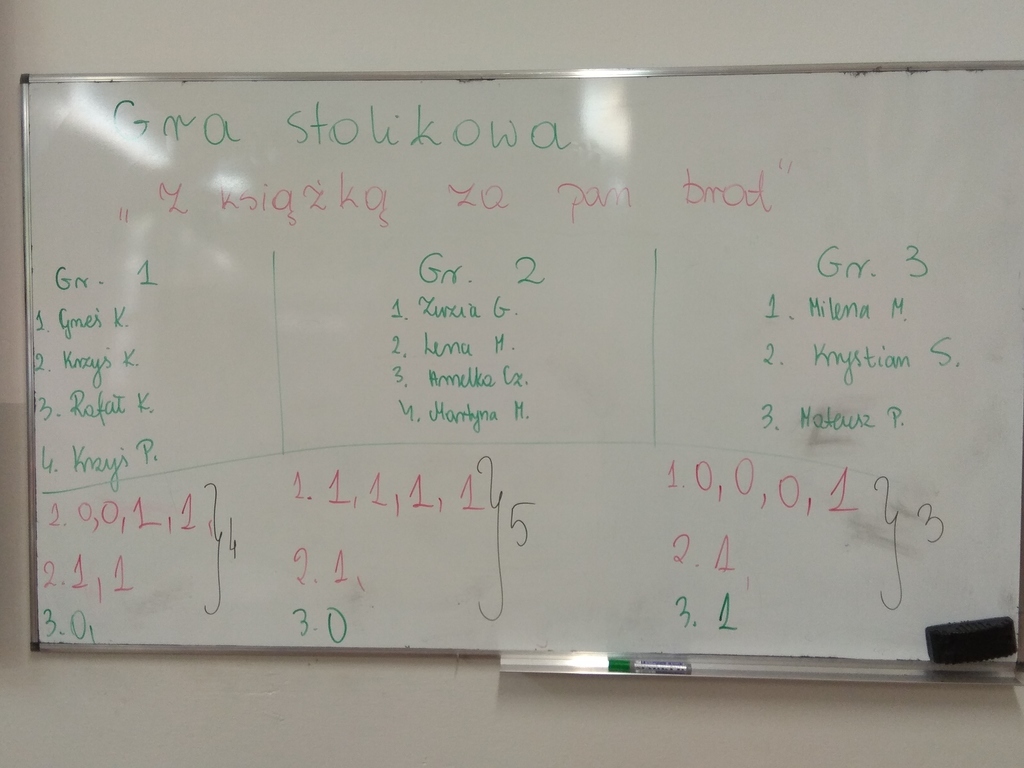 Gra stolikowa
„Z książką za pan brod"
Gr. 1
1. Gneś K.
2. Krzyś K.
3. Rafał K.
4. Krzyś P.
Gr. 2
1. Zuzia G.
2. Lena M.
3. Amelka Cz.
4. Martyna M.
Gr. 3
1. Milena M.
2. Krystian S.
3. Mateusz P.
1. 0,0,1,1, } 4
2. 1, 1
3. 0,
1. 1, 1, 1, 1 } 5
2. 1,
3. 0
1. 0, 0, 0, 1 } 3
2. 1,
3. 1